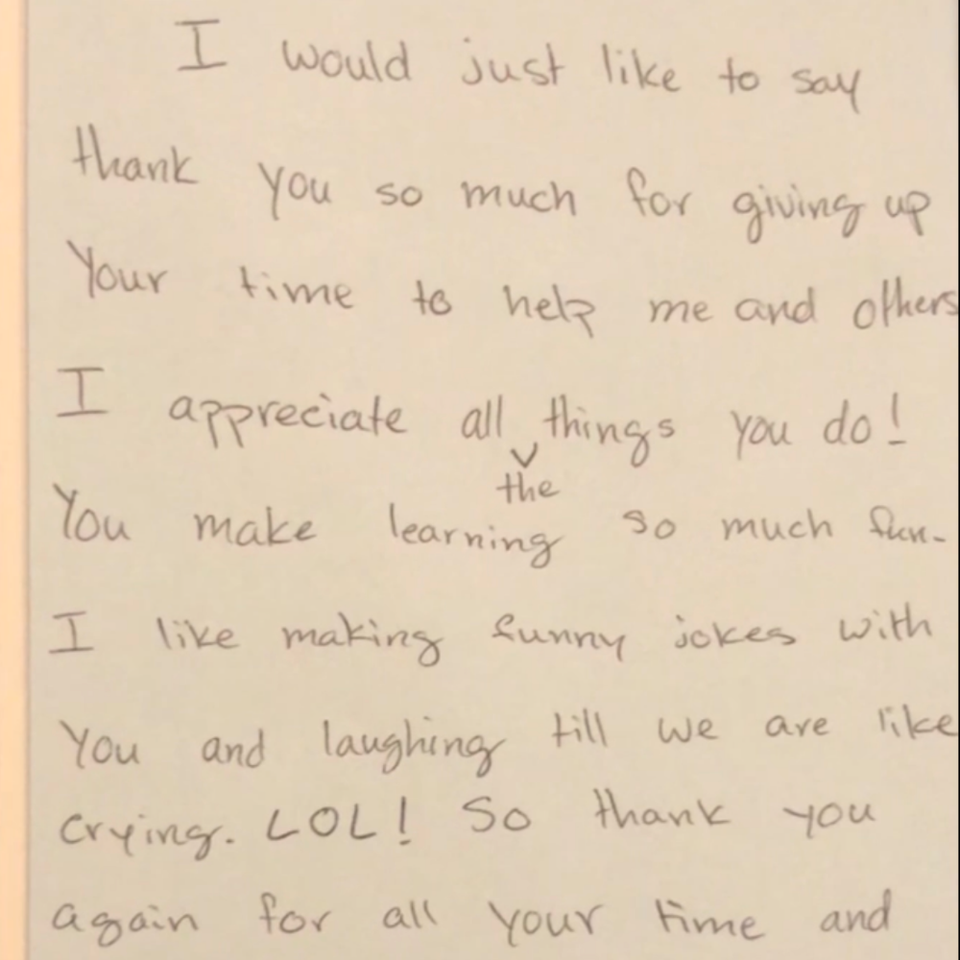 I would just like to say
thank you so much for giving up
Your time to help me and others
I appreciate all the things you do!
You make learning so much fun.
I like making funny jokes with
You and laughing till we are like
crying. LOL! So thank you
again for all your time and